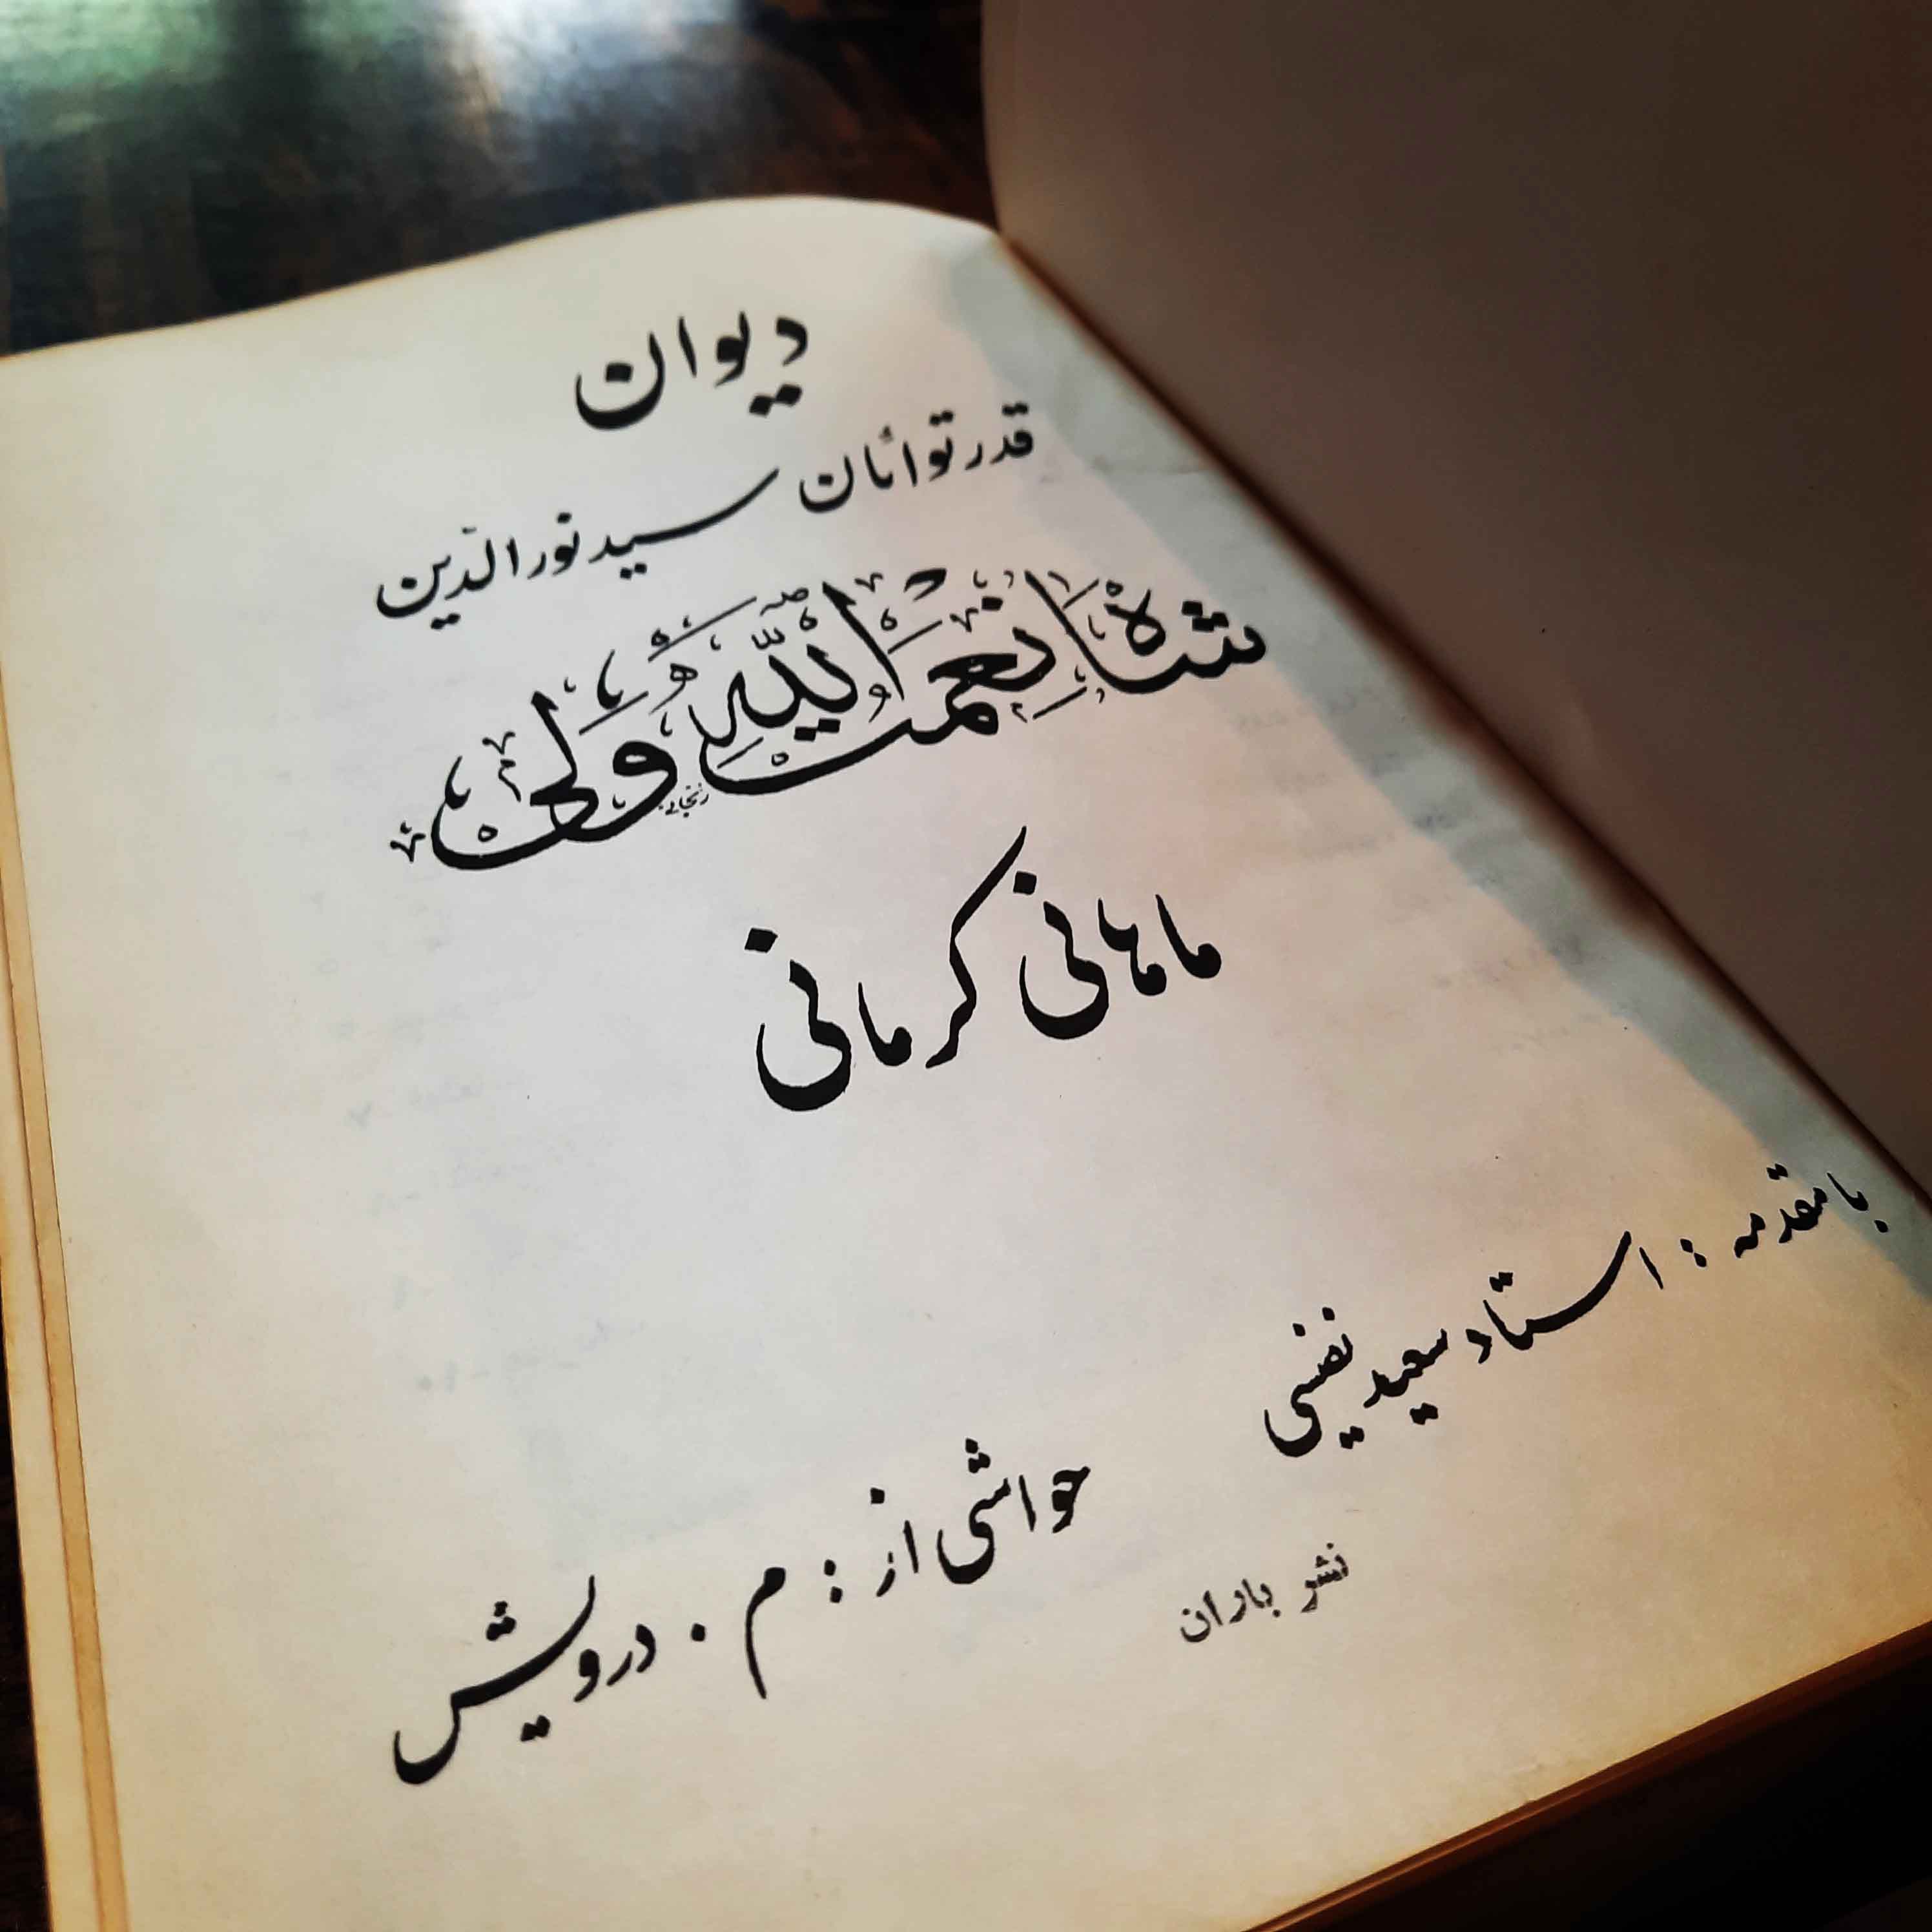 دیوان
قدرتوانان سید نورالدّین
شاه نعمت اللّه ولی
ماهانی کرمانی
با مقدمه : استاد سعید نفیسی
حواشی از : م . درویش
نشر باران